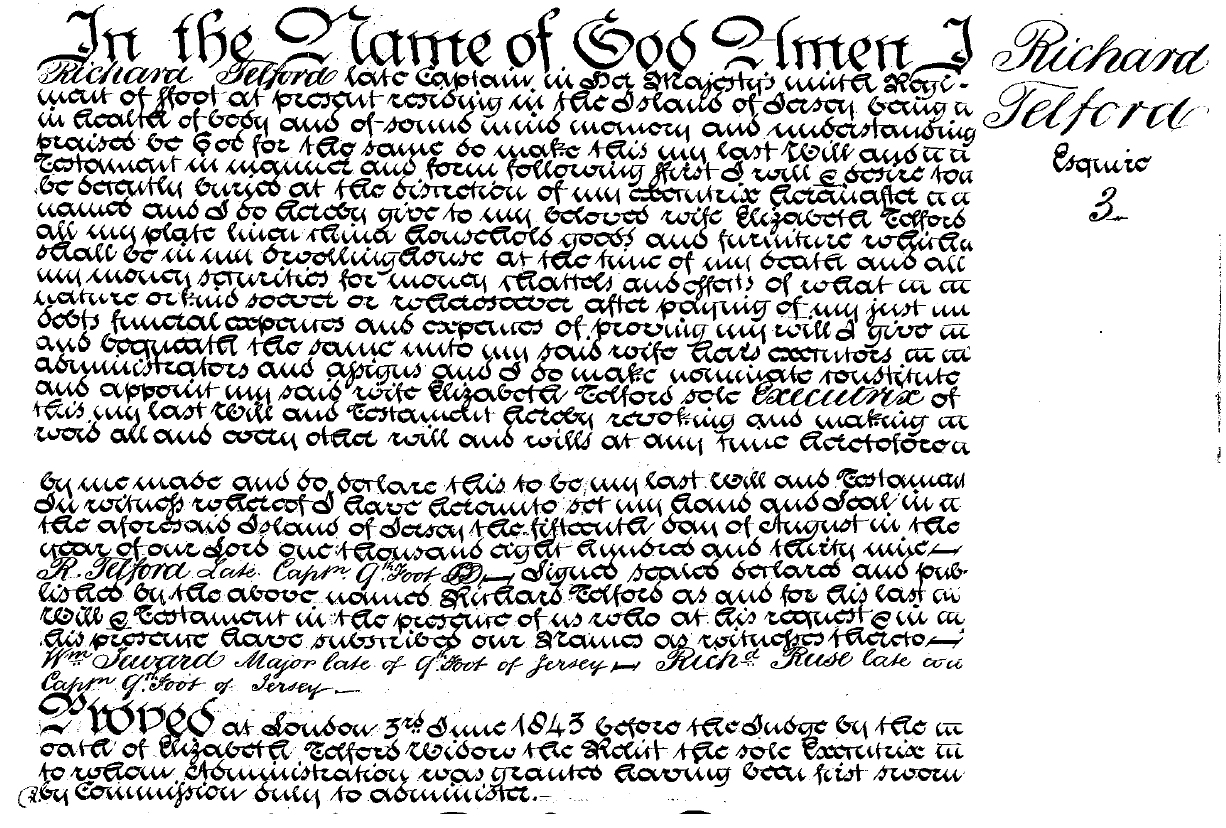 In the Name of God Amen I
Richard Telford late Captain in Her Majesty's ninth Regi-
ment of ffoot at present residing in the Island of Jersey being
in health of body and of sound mind memory and understanding
praised be God for the same do make this my last Will and
Testament in manner and form following ffirst I will & desire to
be decently buried at the discretion of my executrix hereinafter
named and I do hereby give to my beloved wife Elizabeth Telford
all my plate linen china household goods and furniture which
shall be in my dwellinghouse at the time of my death and all
my money securities for money chattels and effects of what
nature or kind soever or wheresoever after paying of my just
debts funeral expences and expences of proving my will I give
and bequeath the same unto my said wife hers executors
administrators and assigns and I do make nominate constitute
and appoint my said wife Elizabeth Telford sole Executrix of
this my last Will and Testament hereby revoking and making
void all and every other will and wills at any time heretofore
by me made and do declare this to be my last Will and Testament
In witness whereof I have hereunto set my hand and Seal in
the aforesaid Island of Jersey the fifteenth day of August in the
year of our Lord one thousand eight hundred and thirty nine —
R. Telford Late Captn 9th Foot — Signed sealed declared and pub-
lished by the above named Richard Telford as and for his last
Will & Testament in the presence of us who at his request & in
his presence have subscribed our Names as witnesses thereto —
Wm Seward Major late of 9th Foot of Jersey — Richd Ruse late
Captn 9th Foot of Jersey —
Proved at London 3rd June 1843 before the Judge by the
oath of Elizabeth Telford Widow the Relict the sole Executrix
to whom Administration was granted having been first sworn
by Commission duly to administer. —
Richard
Telford
Esquire
3